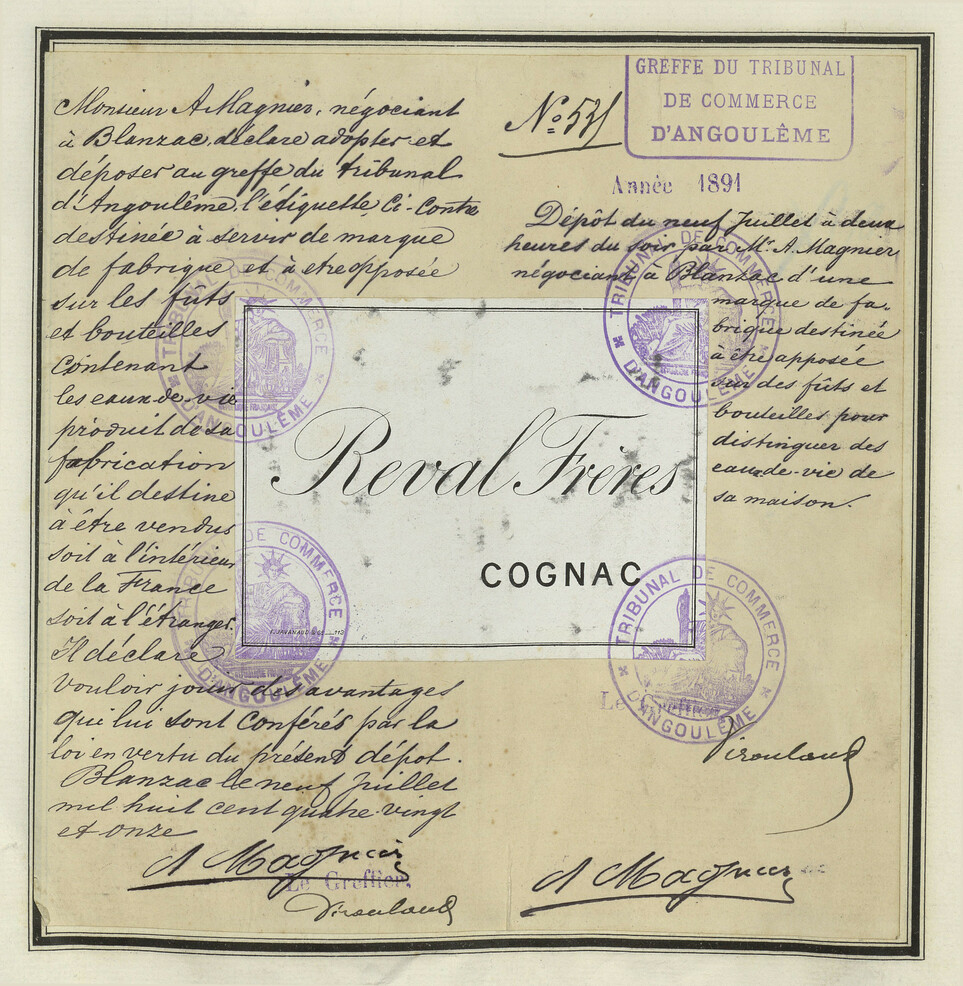 Monsieur A Magnier, négociant
à Blanzac, déclare adopter et
déposer au greffe du tribunal
d'Angoulême, l'étiquette, Ci-Contre
destinée à servir de marque
de fabrique et à etre opposée
sur les futs
et bouteilles
Contenant
les eaux-de-vie
produit de sa
fabrication
qu'il destine
à être vendus
soit à l'intérieur
de la France
soit à l'étranger
Il déclare
vouloir jouir des avantages
qui lui sont Conférés par la
loi en vertu du présent dépôt.
Blanzac le neuf Juillet
mil huit cent quatre-vingt
et onze
A Magnier
Le Greffier,
GREFFE DU TRIBUNAL
DE COMMERCE
D'ANGOULÊME
Année 1891
Dépôt du neuf Juillet à deux
heures du soir par Mr. A. Magnier
négociant à Blanzac d'une
marque de fa-
brique destinée
à être apposée
sur des fûts et
bouteilles pour
distinguer des
eaux-de-vie de
sa maison.
Reval Frères
COGNAC
TRIBUNAL DE COMMERCE
D'ANGOULÊME
TRIBUNAL DE COMMERCE
D'ANGOULÊME
TRIBUNAL DE COMMERCE
D'ANGOULÊME
TRIBUNAL DE COMMERCE
D'ANGOULÊME
Le Greffier
A Magnier